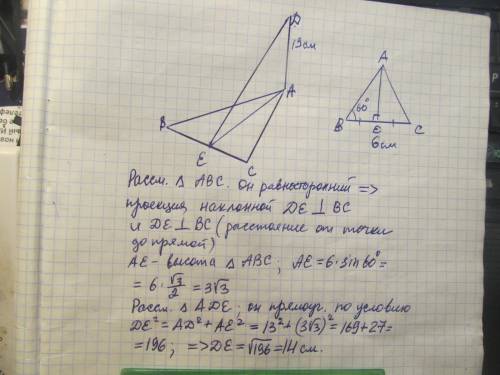 D
13 см
A
B
E
C
A
60°
B
E
C
6 см
Рассм. △ ABC. Он равносторонний =>
проекция наклонной DE ⊥ BC
и DE ⊥ BC (расстояние от точки
до прямой)
AE - высота △ ABC; AE = 6 · sin 60° =
= 6 · √3/2 = 3√3
Рассм. △ ADE; он прямоуг. по условию
DE² = AD² + AE² = 13² + (3√3)² = 169 + 27 =
= 196; => DE = √196 = 14 см.